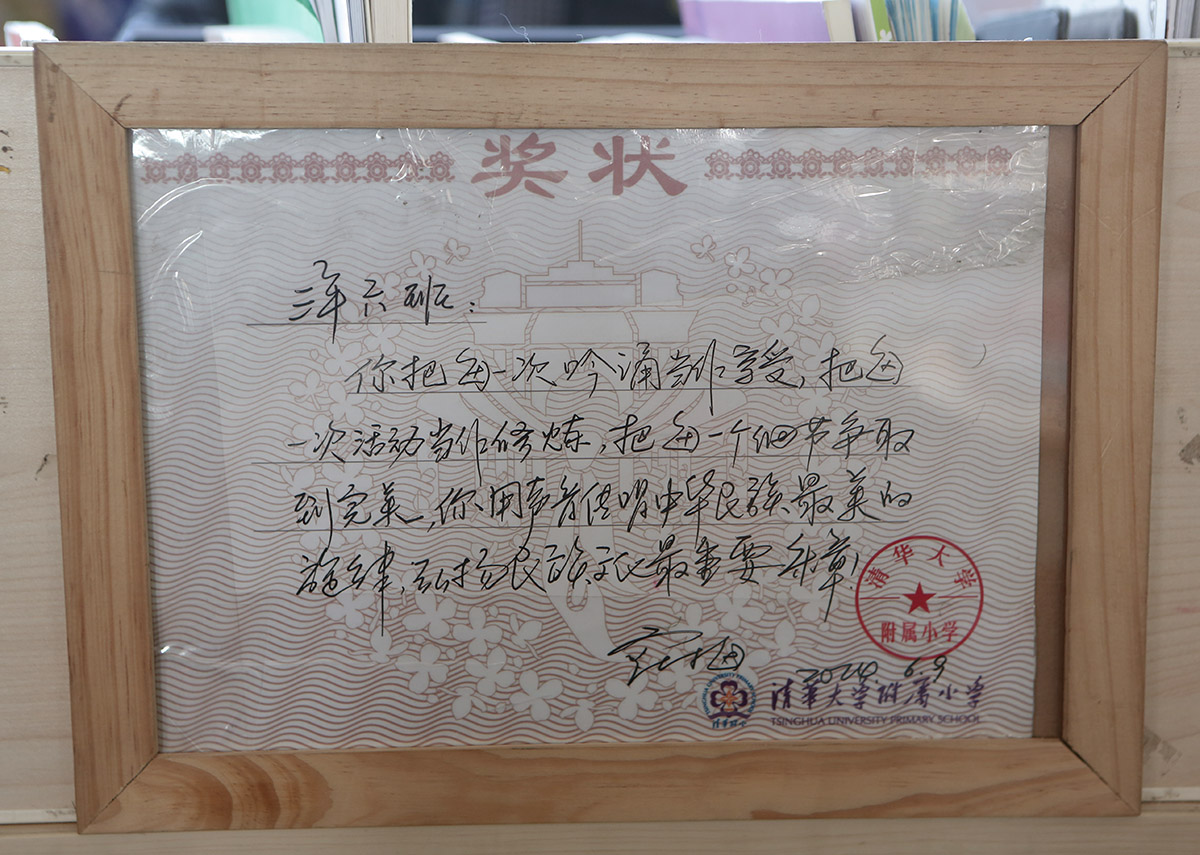 奖状
三年六班：
你把每一次吟诵当作享受，把每
一次活动当作修炼，把每一个细节争取
到完美，你用声音传唱中华民族最美的
旋律，弘扬民族文化最重要乐章！
清华大学
附属小学
2024 6.9
清华大学附属小学
TSINGHUA UNIVERSITY PRIMARY SCHOOL